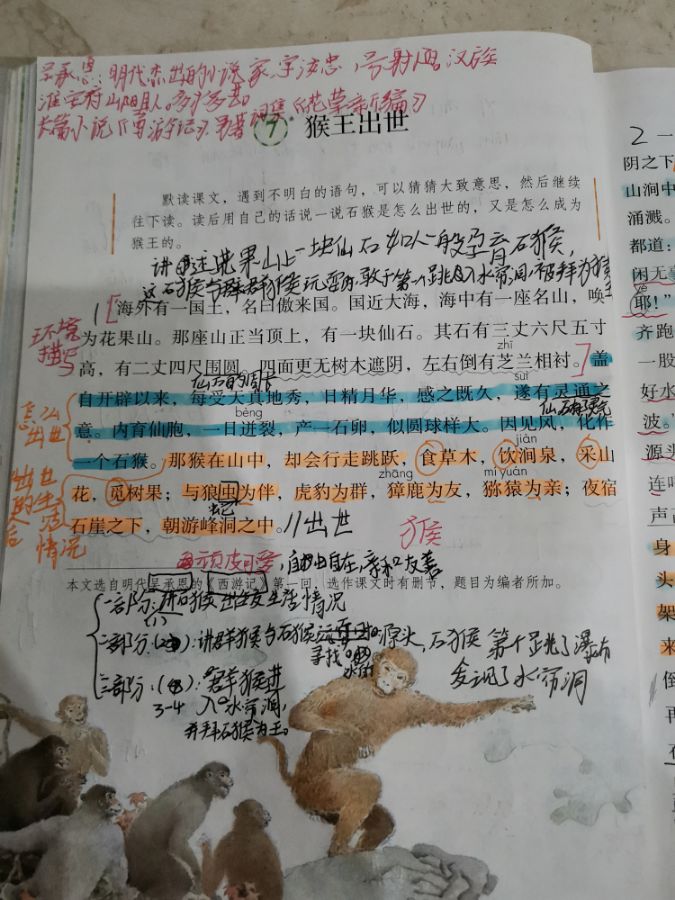 吴承恩：明代杰出的小说家，字汝忠，号射阳，汉族
淮安府山阳县人。多才多艺。
长篇小说《西游记》。另著词集《花草新编》
7 猴王出世
默读课文，遇到不明白的语句，可以猜猜大致意思，然后继续
往下读。读后用自己的话说一说石猴是怎么出世的，又是怎么成为
猴王的。
讲述花果山上一块仙石如人一般孕育石猴，
这石猴与群猴玩耍时，敢于第一个跳入水帘洞，被拜为猴王
1[海外有一国土，名曰傲来国。国近大海，海中有一座名山，唤
环境
描写
为花果山。那座山正当顶上，有一块仙石。其石有三丈六尺五寸
zhī
高，有二丈四尺围圆。四面更无树木遮阴，左右倒有芝兰相衬。]盖
仙石的周长
suì
自开辟以来，每受天真地秀，日精月华，感之既久，遂有灵通之
bèng
意。内育仙胞，一日迸裂，产一石卵，似圆球样大。因见风，化作
怎么
出世
jiàn
一个石猴。那猴在山中，却会行走跳跃，食草木，饮涧泉，采山
zhāng mí yuán
花，觅树果；与狼虫为伴，虎豹为群，獐鹿为友，猕猿为亲；夜宿
出世
生活
情况
石崖之下，朝游峰洞之中。//出世
猴
顽皮可爱，自由自在，亲和友善
本文选自明代吴承恩的《西游记》第一回，选作课文时有删节，题目为编者所加。
一部分：讲石猴出世及生活情况
(1)
二部分：讲群猴与石猴
寻找
源头，石猴第一个跳了瀑布
发现了水帘洞
三部分：群猴进
3-4 入水帘洞，
并拜石猴为王。
2 一
阴之下
山涧中
涌溅。
都道：
闲无事
耶！”
齐跑
一股
好水
波。”
源头
连呼
声
身
头
架
来
倒
再